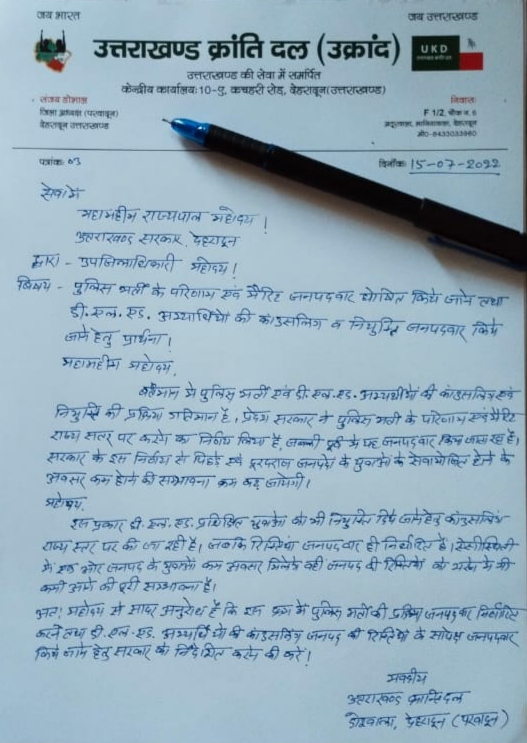 जय भारत
जय उत्तराखण्ड
उत्तराखण्ड क्रांति दल (उक्रांद)
UKD
उत्तराखण्ड की सेवा में समर्पित
केन्द्रीय कार्यालयः 10-ए, कचहरी रोड, देहरादून (उत्तराखण्ड)
जिला अध्यक्ष (परवादून)
देहरादून उत्तराखण्ड
निवासः
F 1/2,
देहरादून
मो0-8433033980
पत्रांकः 03
दिनाँकः 15-07-2022
सेवामें
महामहीम राज्यपाल महोदय!
उत्तराखण्ड सरकार, देहरादून
द्वारा - उपजिलाधिकारी महोदय!
विषय - पुलिस भर्ती के परिणाम एवं मैरिट जनपदवार घोषित किये जाने तथा
डी.एल.एड. अभ्यर्थियों की काउंसलिंग व नियुक्ति जनपदवार किये
जाने हेतु प्रार्थना।
महामहीम महोदय,
वर्तमान मे पुलिस भर्ती एवं डी.एल.एड. अभ्यर्थीयों की काउंसलिंग एवं
नियुक्ति की प्रक्रिया गतिमान है, प्रदेश सरकार ने पुलिस भर्ती के परिणाम एवं मैरिट
राज्य स्तर पर करने का निर्णय लिया है, जबकी पूर्व में यह जनपदवार किया जाता रहा है।
सरकार के इस निर्णय से पिछड़े एवं दूरदराज जनपदो के युवाओं के सेवायोजित होने के
अवसर कम होने की सम्भावना बढ़ जायेगी।
महोदय,
इस प्रकार डी.एल.एड. प्रशिक्षित युवाओ को भी नियुक्ति दिये जाने हेतु काउंसलिंग
राज्य स्तर पर की जा रही है। जबकि रिक्तियां जनपदवार ही निर्धारित है। ऐसी स्थिती
में एक ओर जनपद के युवाओं कम अवसर मिलेंगे वही जनपद की रिक्तियों को भरने में भी
कमी आने की पूरी सम्भावना है।
अतः महोदय से सादर अनुरोध है कि इस क्रम में पुलिस भर्ती की प्रक्रिया जनपदवार निर्धारित
करने तथा डी.एल.एड. अभ्यर्थियों की काउंसलिंग जनपद की रिक्तियों के सापेक्ष जनपदवार
किये जाने हेतु सरकार को निर्देशित करने की करें!
भवदीय
उत्तराखण्ड क्रान्ति दल
डोईवाला, देहरादून (परवादून)